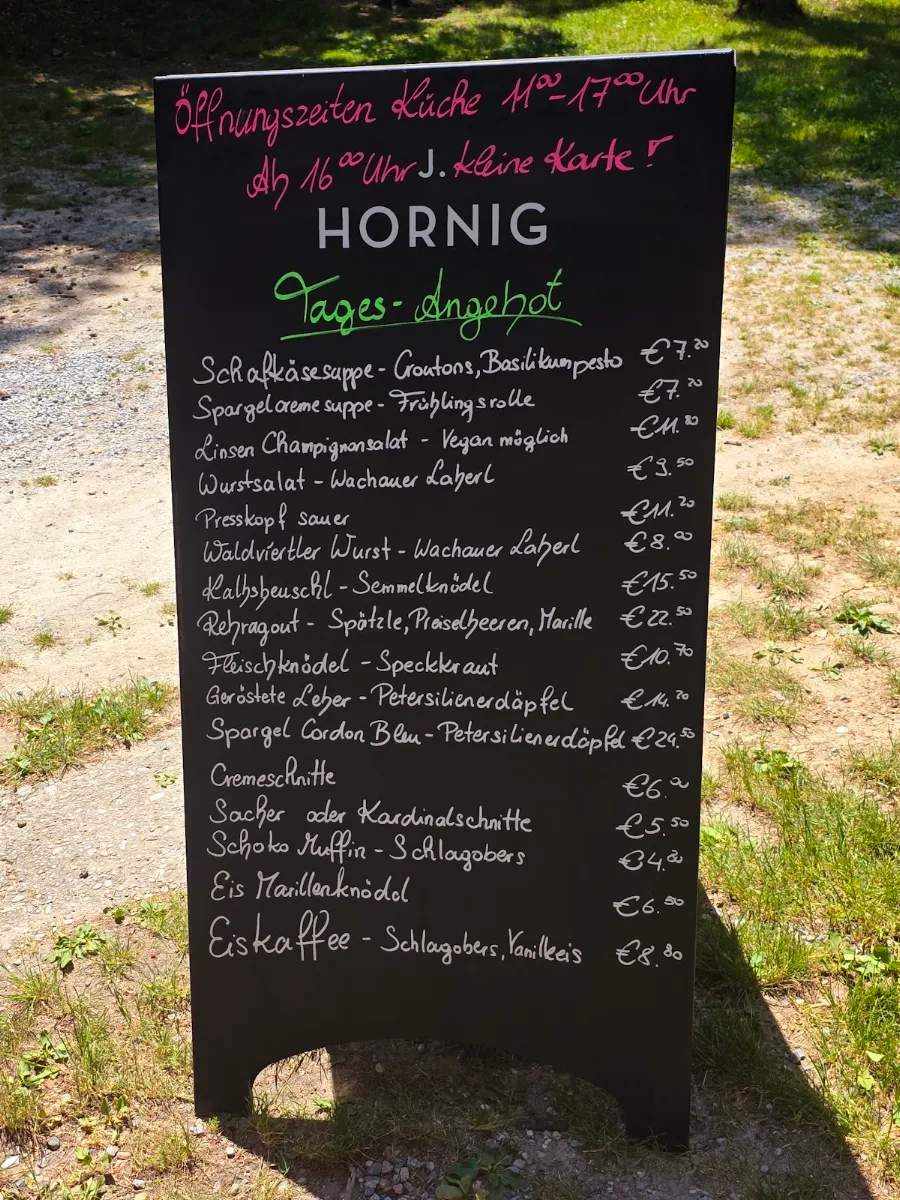 Öffnungszeiten Küche 11⁰⁰-17⁰⁰ Uhr
Ab 16⁰⁰ Uhr kleine Karte!
J.
HORNIG
Tages-Angebot
Schafkäsesuppe - Croutons, Basilikumpesto €7.20
Spargelcremesuppe - Frühlingsrolle €7.20
Linsen Champignonsalat - Vegan möglich €11.80
Wurstsalat - Wachauer Laberl €9.50
Presskopf sauer €11.20
Waldviertler Wurst - Wachauer Laberl €8.00
Kalbsbeuschl - Semmelknödel €15.50
Rehragout - Spätzle, Preiselbeeren, Marille €22.50
Fleischknödel - Speckkraut €10.70
Geröstete Leber - Petersilienerdäpfel €14.20
Spargel Cordon Bleu - Petersilienerdäpfel €24.50
Cremeschnitte €6.00
Sacher oder Kardinalschnitte €5.50
Schoko Muffin - Schlagobers €4.80
Eis Marillenknödel €6.50
Eiskaffee - Schlagobers, Vanilleeis €8.80